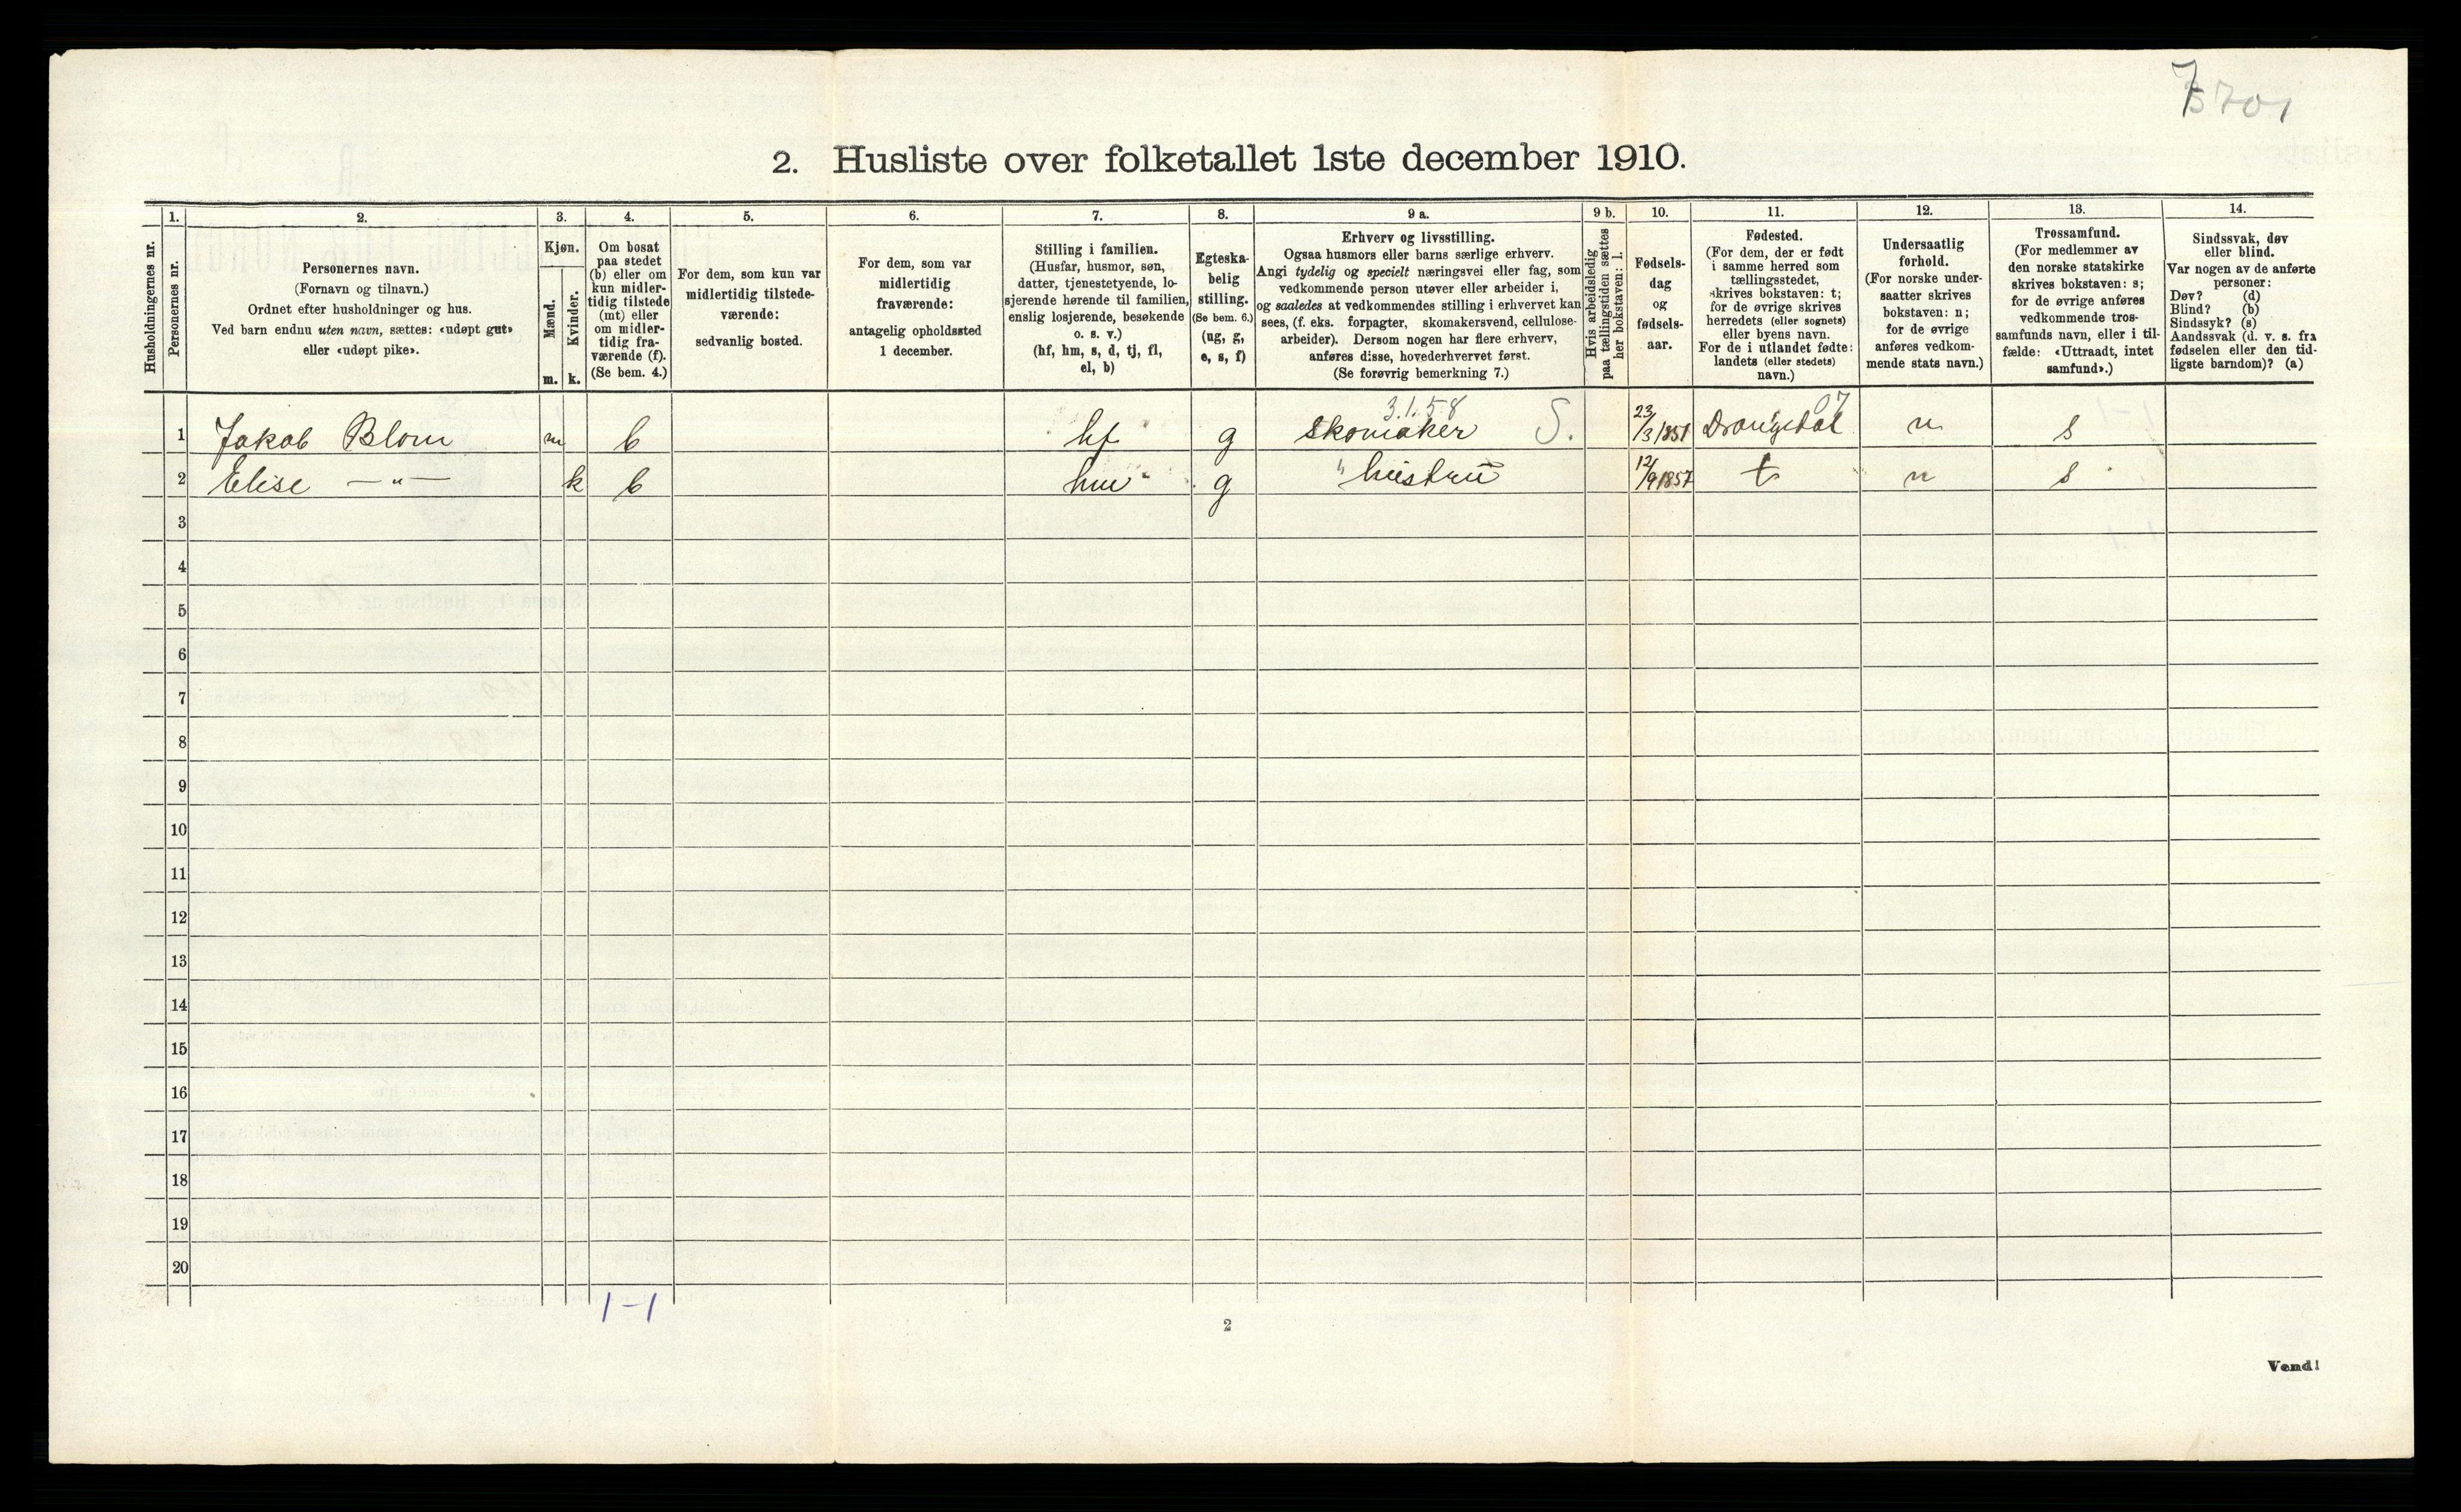 7
3701
2. Husliste over folketallet 1ste december 1910.
Husholdningernes nr.
1.
Personernes nr.
2.
Personernes navn.
(Fornavn og tilnavn.)
Ordnet efter husholdninger og hus.
Ved barn endnu uten navn, sættes: «udøpt gut»
eller «udøpt pike».
3.
Kjøn.
Mænd.
Kvinder.
m. k.
4.
Om bosat
paa stedet
(b) eller om
kun midler-
tidig tilstede
(mt) eller
om midler-
tidig fra-
værende (f).
(Se bem. 4.)
5.
For dem, som kun var
midlertidig tilstede-
værende:
sedvanlig bosted.
6.
For dem, som var
midlertidig
fraværende:
antagelig opholdssted
1 december.
7.
Stilling i familien.
(Husfar, husmor, søn,
datter, tjenestetyende, lo-
sjerende hørende til familien,
enslig losjerende, besøkende
o. s. v.)
(hf, hm, s, d, tj, fl,
el, b)
8.
Egteska-
belig
stilling.
(Se bem. 6.)
(ug, g,
e, s, f)
9 a.
Erhverv og livsstilling.
Ogsaa husmors eller barns særlige erhverv.
Angi tydelig og specielt næringsvei eller fag, som
vedkommende person utøver eller arbeider i,
og saaledes at vedkommendes stilling i erhvervet kan
sees, (f. eks. forpagter, skomakersvend, cellulose-
arbeider). Dersom nogen har flere erhverv,
anføres disse, hovederhvervet først.
(Se forøvrig bemerkning 7.)
9 b.
Hvis arbeidsledig
paa tællingstiden sættes
her bokstaven: l.
10.
Fødsels-
dag
og
fødsels-
aar.
11.
Fødested.
(For dem, der er født
i samme herred som
tællingsstedet,
skrives bokstaven: t;
for de øvrige skrives
herredets (eller sognets)
eller byens navn.
For de i utlandet fødte:
landets (eller stedets)
navn.)
12.
Undersaatlig
forhold.
(For norske under-
saatter skrives
bokstaven: n;
for de øvrige
anføres vedkom-
mende stats navn.)
13.
Trossamfund.
(For medlemmer av
den norske statskirke
skrives bokstaven: s;
for de øvrige anføres
vedkommende tros-
samfunds navn, eller i til-
fælde: «Uttraadt, intet
samfund».)
14.
Sindssvak, døv
eller blind.
Var nogen av de anførte
personer:
Døv? (d)
Blind? (b)
Sindssyk? (s)
Aandssvak (d. v. s. fra
fødselen eller den tid-
ligste barndom)? (a)
3.1.58 07
1 Jakob Blom m b hf g Skomaker S. 23/3 1851 Drangedal n s
2 Elise —"— k b hm g " hustru 12/9 1857 t n s
3
4
5
6
7
8
9
10
11
12
13
14
15
16
17
18
19
20
1-1
2
Vend!